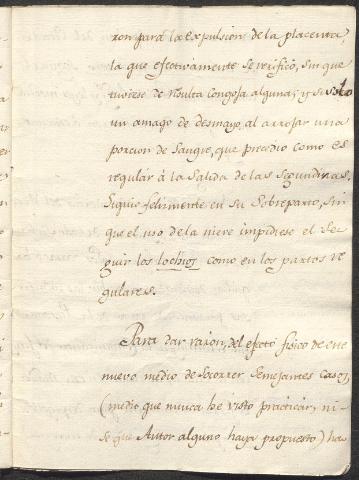 ron para la expulsion de la placenta,
la que efectivamente se verificó, sin que
tuviese de resulta congoja alguna, y si solo
un amago de desmayo, al arrojar una
porcion de Sangre, que precedio como es
regulár à la Salida de las Segundinas.
Siguio felizmente en su Sobreparto, sin
que el uso de la nieve impidiese el Se-
guir los lochios como en los partos re-
gulares.
Para dar razon, del efecto fisico de este
nuevo medio de Socorrer Semejantes Casos,
(medio que nunca he visto practicár, ni
se que Autor alguno haya propuesto) ha